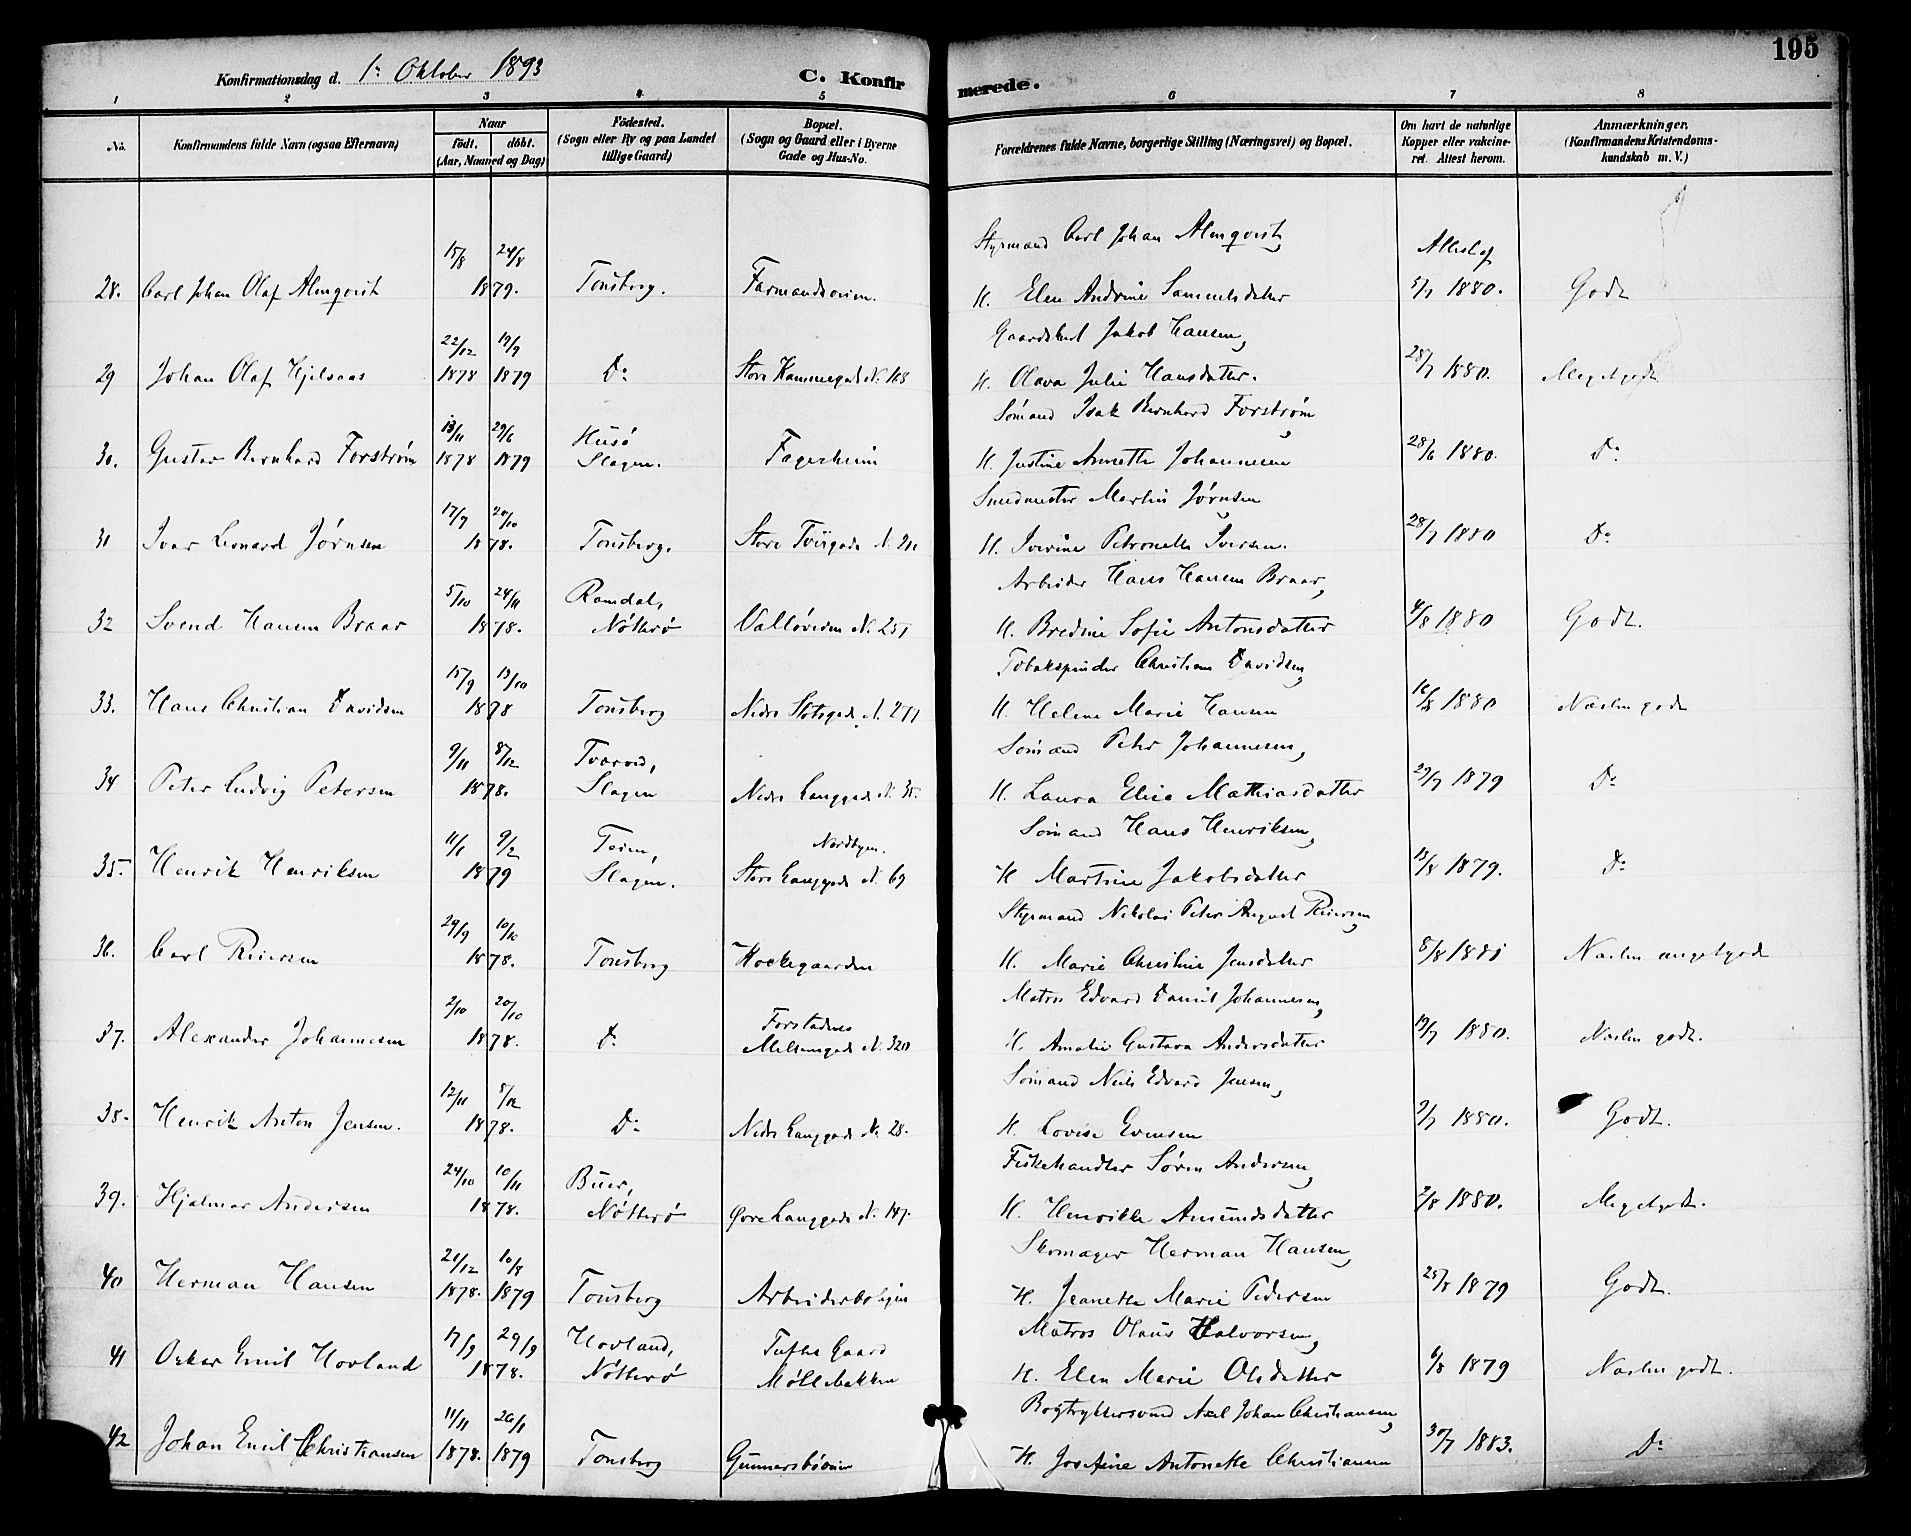 195
Konfirmationsdag d. 1ste Oktober 1893
C. Konfirmerede.
1 2 3 4 5 6 7 8
No.
Konfirmandens fulde Navn (ogsaa Efternavn)
Naar
födt. döbt.
(Aar, Maaned og Dag)
Födested.
(Sogn eller By og paa Landet
tillige Gaard)
Bopæl.
(Sogn og Gaard eller i Byerne
Gade og Hus-No.
Forældrenes fulde Navne, borgerlige Stilling (Næringsvei) og Bopæl.
Om havt de naturlige
Kopper eller vakcine-
ret. Attest herom.
Anmærkninger.
(Konfirmandens Kristendoms-
kundskab m. V.)
Styrmand Carl Johan Almqvist, Attest af
15/8 24/8
28. Carl Johan Olaf Almqvist 1879. Tønsberg. Farmandsveien. H. Elen Andrine Samuelsdatter 5/7 1880. Godt
22/12 19/9 Gaardskarl Jakob Hansen,
29 Johan Olaf Hjelsaas 1878 1879 Do Store Kammegade N. 168 H. Olava Julie Hansdatter. 28/7 1880. Megetgodt
13/11 29/6 Husö Sömand Isak Bernhard Forstrøm,
30. Gustav Bernhard Forstrøm 1878 1879 Slagen. Fagerheim H. Justine Annette Johannesen 28/6 1880. Do
17/9 20/10 Smedmester Martin Jørnsen
31 Ivar Leonard Jörnsen 1878. Tønsberg. Store N. H. Iverine Petronella Iversen. 28/7 1880 Do
5/10 24/11 Ramdal, Arbeider Hans Hansen Braar,
32 Svend Hansen Braar 1878. Nötterö Vallöveien N. 257 H. Bredine Sofie Antonsdatter 4/8 1880 Godt.
15/9 13/10 Tobakspinder Christian Davidsen,
33. Hans Christian Davidsen 1878 Tönsberg Nedre Slotsgade N. 277 H. Helene Marie Hansen 16/8 1880 Næsten godt
9/11 8/12 Tvarved, Sömand Peter Johannesen,
34 Peter Ludvig Petersen 1878. Slagen Nedre Langgade N. 35. H. Laura Elise Mathiasdatter 29/7 1879 Do
11/1 9/2 Teien, Nordbyen. Sömand Hans Henriksen,
35. Henrik Henriksen 1879 Slagen. Store Langgade N. 69 H Martine Jakobsdatter 13/8 1879. Do
29/9 10/10 Styrmand Nikolai Peter August Reiersen,
36. Carl Reiersen 1878. Tönsberg Kockegaarden H. Marie Christine Jensdatter 8/8 1881 Næsten megetgodt
2/10 20/10 Forstadens Matros Edvard Daniel Johannesen,
37. Alexander Johannesen 1878. Do Melsomgade N. 320 H. Amalie Gustava Andersdatter 19/7 1880. Næsten godt.
12/11 8/12 Sömand Niels Edvard Jensen,
38. Henrik Anton Jensen. 1878. Do Nedre Langgade N. 28. H. Lovise Evensen 9/7 1880. Godt.
24/10 10/11 Buer, Fiskehandler Sören Andersen,
39. Hjalmar Andersen 1878. Nötterö Øvre Langgade N. 147. H. Henrikke Amundsdatter 2/8 1880. Megetgodt.
21/12 10/8 Skomager Herman Hansen,
40 Herman Hansen 1878. 1879 Tönsberg Arbeiderboligen H. Jeanette Marie Pedersen 25/8 1879 Godt.
17/9 29/9 Hovland, Tufte Gaard Matros Olaus Halvorsen,
41 Oskar Emil Hovland 1878. Nötterö Möllebakken H. Elen Marie Olsdatter 6/8 1879 Næsten godt.
11/11 26/1 Bogtrykkersvend Axel Johan Christiansen,
42 Johan Emil Christiansen 1878. 1879 Tönsberg Gunnarsböveien H. Josefine Antonette Christiansen 30/7 1883. Do